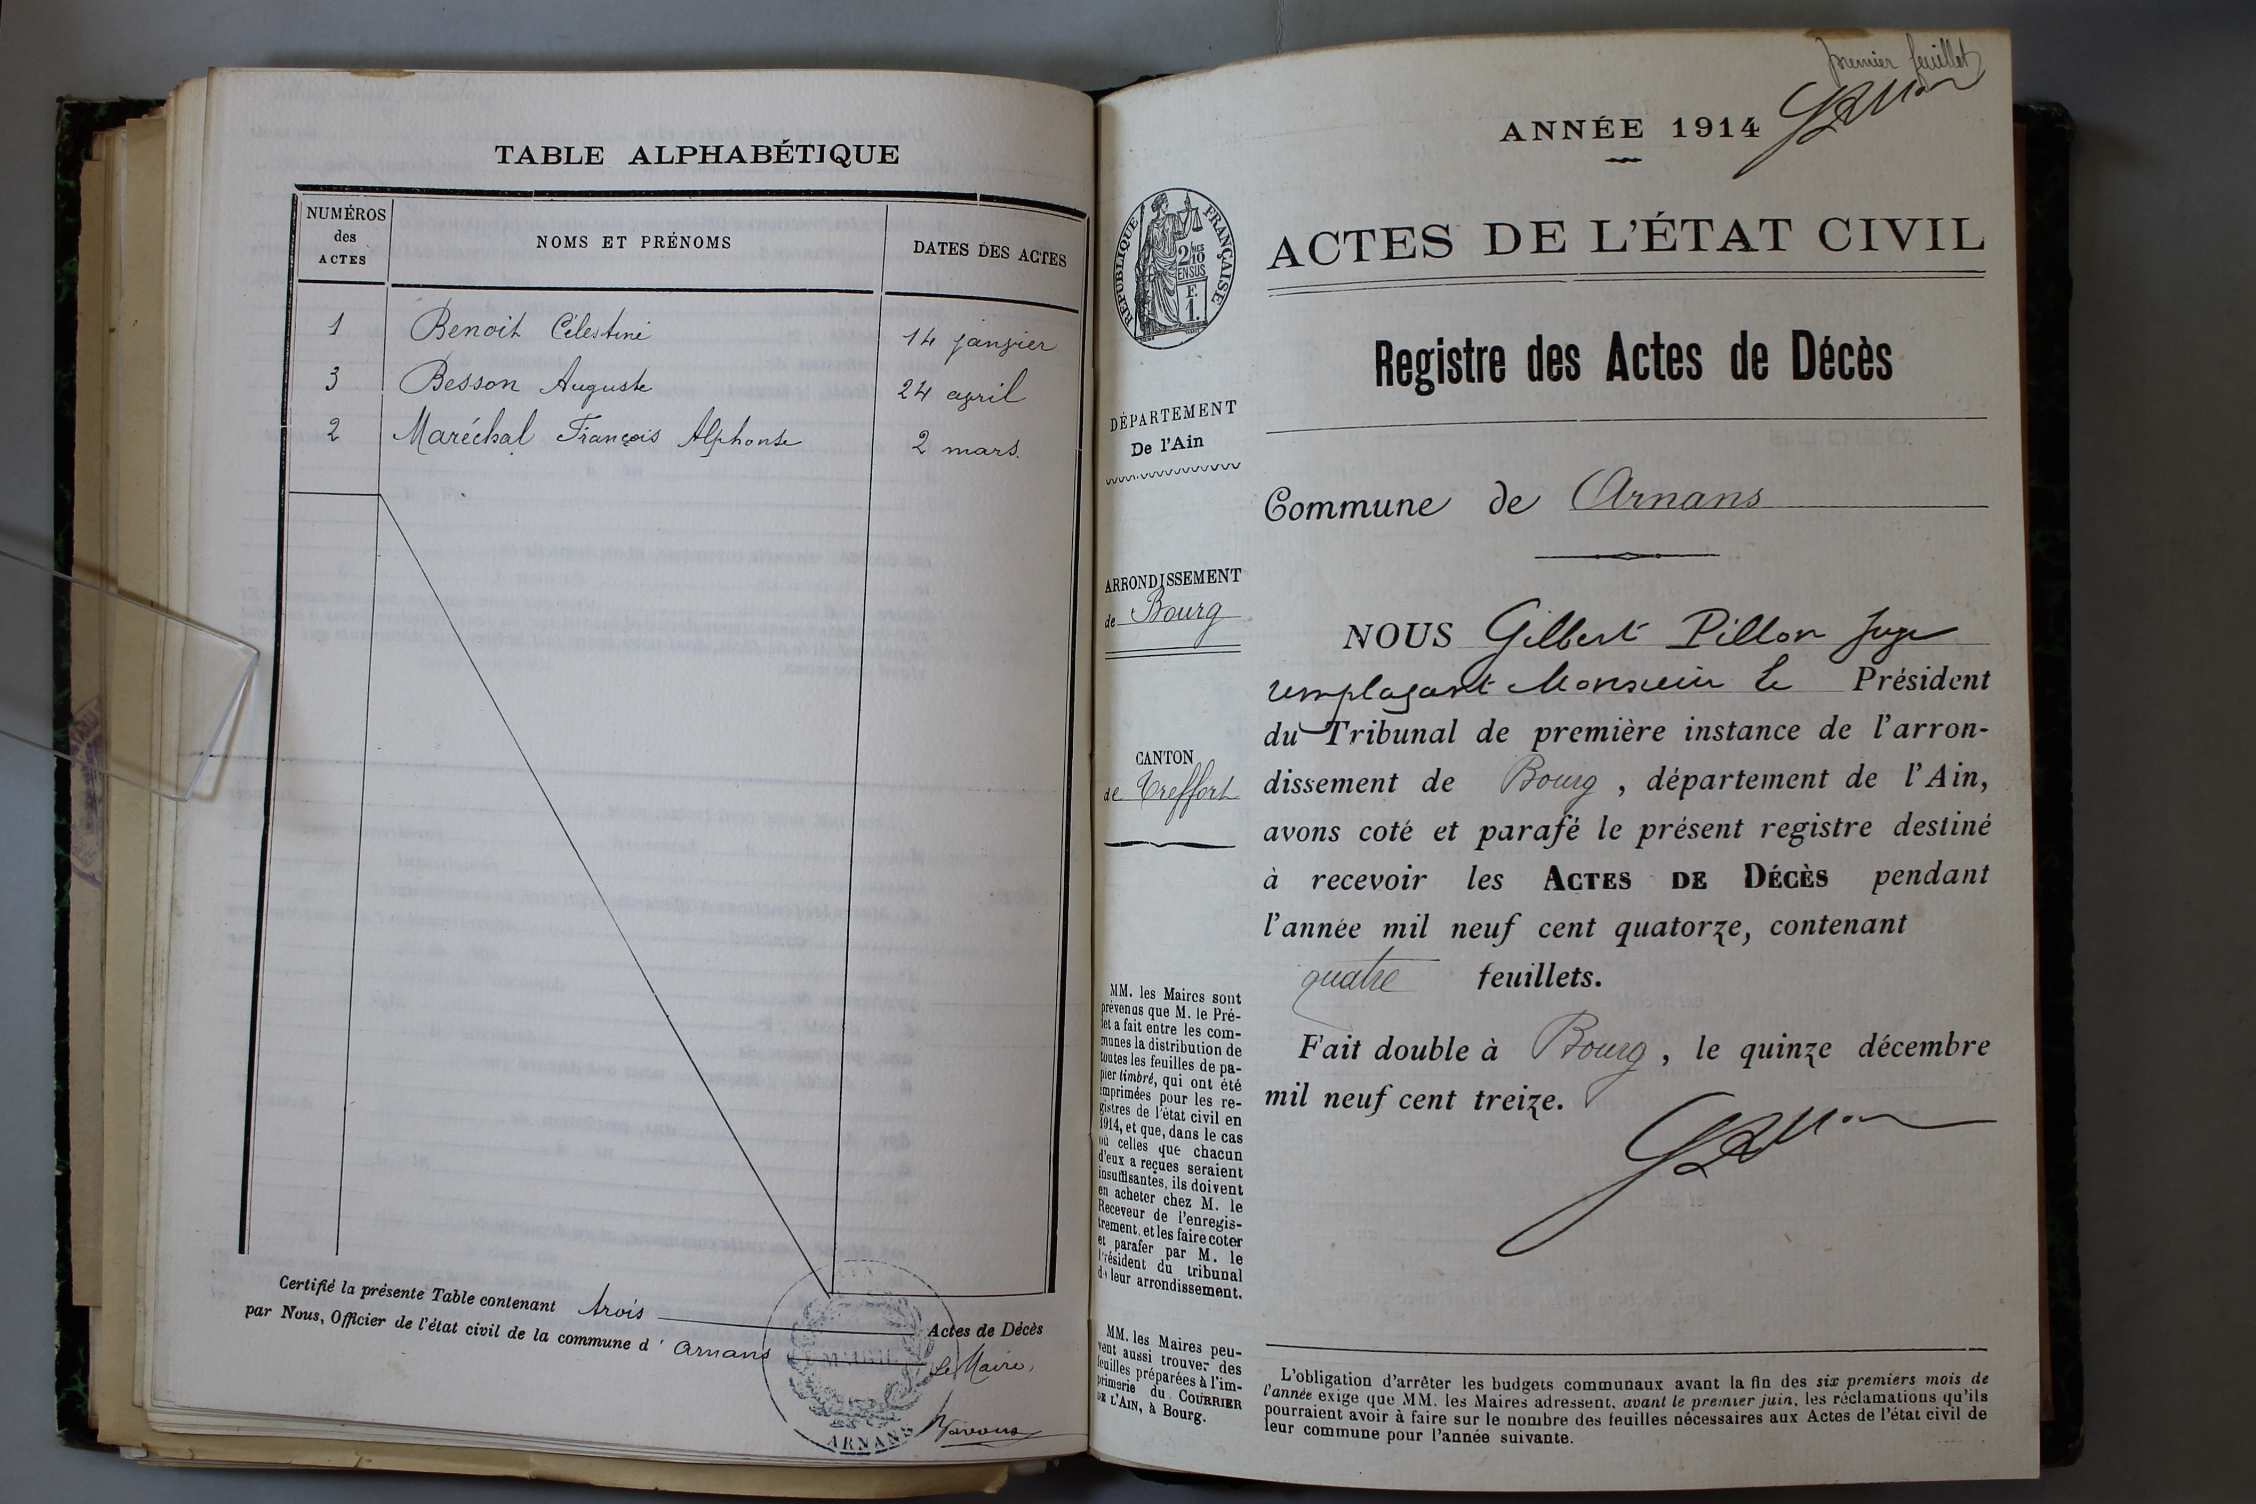 TABLE ALPHABÉTIQUE
NUMÉROS
des
ACTES
NOMS ET PRÉNOMS
DATES DES ACTES
1 Benoit Célestine 14 janvier
3 Besson Auguste 24 avril
2 Maréchal François Alphonse 2 mars.
Certifié la présente Table contenant trois Actes de Décès
par Nous, Officier de l'état civil de la commune d' Arnans
Le Maire,
ARNANS
premier feuillet
ANNÉE 1914
ACTES DE L'ÉTAT CIVIL
Registre des Actes de Décès
RÉPUBLIQUE FRANÇAISE
2/10
EN SUS
F.
1.
DÉPARTEMENT
De l'Ain
ARRONDISSEMENT
de Bourg
CANTON
de Treffort
MM. les Maires sont
prévenus que M. le Pré-
fet a fait entre les com-
munes la distribution de
toutes les feuilles de pa-
pier timbré, qui ont été
imprimées pour les re-
gistres de l'état civil en
1914, et que, dans le cas
où celles que chacun
d'eux a reçues seraient
insuffisantes, ils doivent
en acheter chez M. le
Receveur de l'enregis-
trement, et les faire coter
et parafer par M. le
Président du tribunal
de leur arrondissement.
MM. les Maires peu-
vent aussi trouver des
feuilles préparées à l'im-
primerie du COURRIER
DE L'AIN, à Bourg.
Commune de Arnans
NOUS Gilbert Pillon Juge
remplaçant Monsieur le Président
du Tribunal de première instance de l'arron-
dissement de Bourg, département de l'Ain,
avons coté et parafé le présent registre destiné
à recevoir les ACTES DE DÉCÈS pendant
l'année mil neuf cent quatorze, contenant
quatre feuillets.
Fait double à Bourg, le quinze décembre
mil neuf cent treize.
L'obligation d'arrêter les budgets communaux avant la fin des six premiers mois de
l'année exige que MM. les Maires adressent, avant le premier juin, les réclamations qu'ils
pourraient avoir à faire sur le nombre des feuilles nécessaires aux Actes de l'état civil de
leur commune pour l'année suivante.